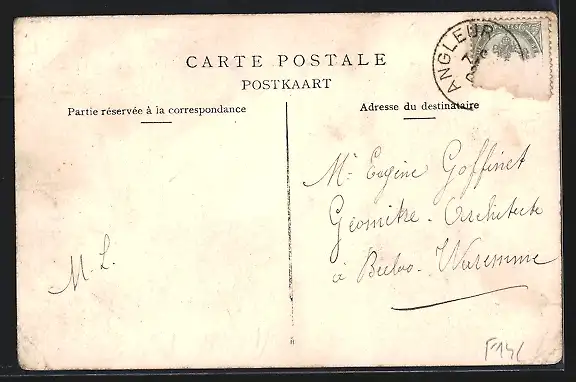 CARTE POSTALE
POSTKAART
Partie réservée à la correspondance
Adresse du destinataire
ANGLEUR
Mr Eugène Goffinet
Géomètre - Architecte
à Berloo - Waremme
M. L.